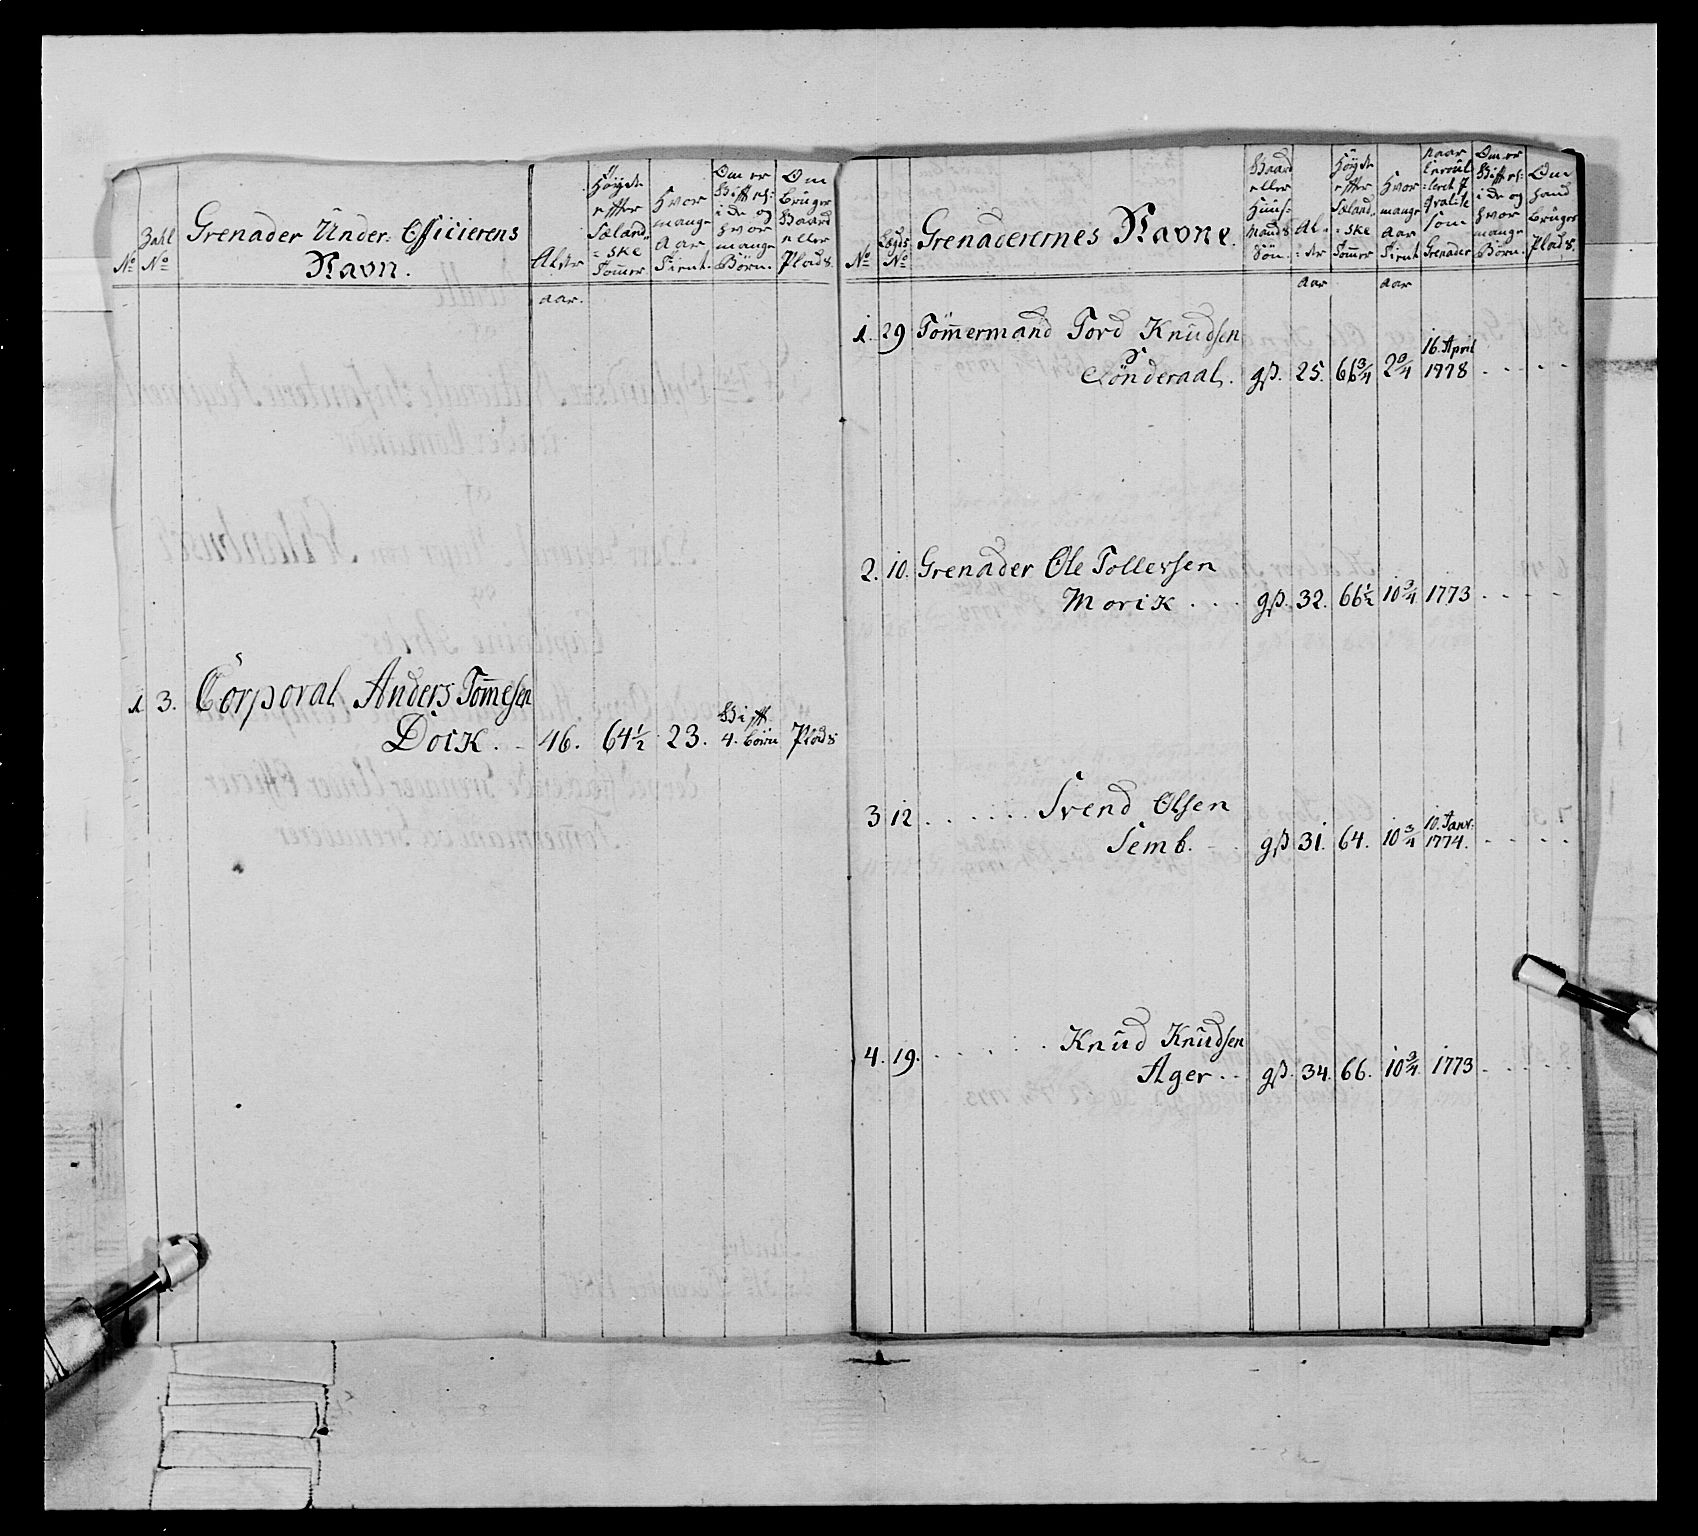 No
Zahl No
Grenader Under: Officierens
Navn.
Alder
Høyde efter Sælandske Tommer
Hvor mange Aar Tient.
Om er Gifft es: i de og hvor mange Børn.
Om Bruger Gaard eller Plads.
aar.
1 3. Corporal Anders Tom̄esen
Doik. 46. 64½ 23. Gifft. 4. børn Plads
No
Lægds No
Grenaderernes Navne.
Gaard eller Huus: Mands Søn.
Al-der
Høyde efter Sæland-ske Tom̄er
Hvor mange Aar Tient
naar Enroul-leret i Qvalite som Grenader
Om er Gifft es: i de og hvor mange Børn.
Om hand Bruger Plads.
aar aar
1. 29 Töm̄ermand Tord Knudsen 16. April
Sönderaal. gß. 25. 66¾ 2¾ 1778 . . . . .
2. 10. Grenader Ole Tollefsen
Morik . . . gß. 32. 66½ 10¾ 1773 . . . .
3 12 . . . . . . Svend Olsen 10. Janr:
Semb. gß 31. 64. 10¾ 1774. . . . .
4. 19. . . . . . . Knud Knudsen
Ager . . gß. 34. 66. 10¾ 1773 . . . . .